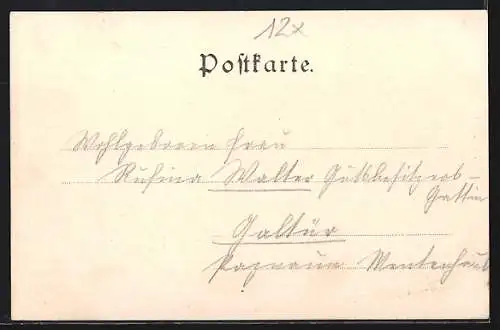 12x
Postkarte.
Wohlgeboren Frau
Rufina Walter Gutsbesitzers-
Gattin
Galtür
Paznaun